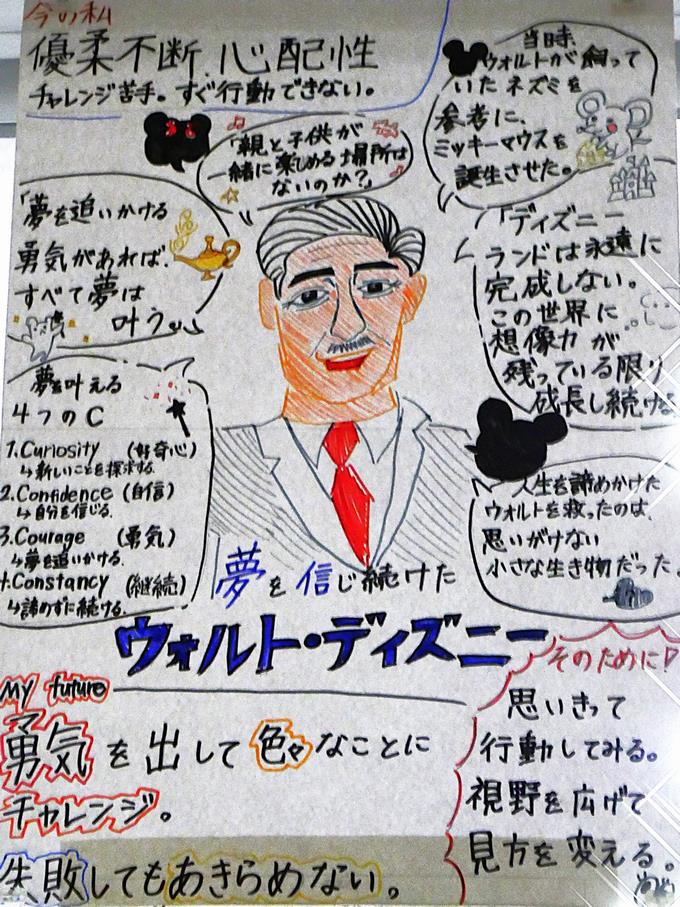 今の私
優柔不断、心配性
チャレンジ苦手。すぐ行動できない。
当時、
ウォルトが飼って
いたネズミを
参考に、
ミッキーマウスを
誕生させた。
「親と子供が
一緒に楽しめる場所は
ないのか?」
「夢を追いかける
勇気があれば、
すべて夢は
叶う。」
「ディズニー
ランドは永遠に
完成しない。
この世界に
想像力が
残っている限り
成長し続ける
夢を叶える
4つのC
1.Curiosity (好奇心)
↳新しいことを探求する
2.Confidence (自信)
↳自分を信じる。
3.Courage (勇気)
↳夢を追いかける。
4.Constancy (継続)
↳諦めずに続ける。
人生を諦めかけた
ウォルトを救ったのは、
思いがけない
小さな生き物だった。
夢を信じ続けた
ウォルト・ディズニー
My future
勇気を出して色々なことに
チャレンジ。
失敗してもあきらめない。
そのために!
思いきって
行動してみる。
視野を広げて
見方を変える。